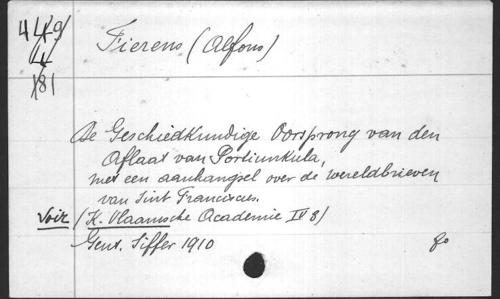 449/
4/
181
Fierens (Alfons)
De Geschiedkundige Oorsprong van den
Aflaat van Portiunkula,
met een aanhangsel over de wereldbrieven
van Sint Franciscus.
Voir (K. Vlaamsche Academie IV 8)
Gent. Siffer 1910
8o